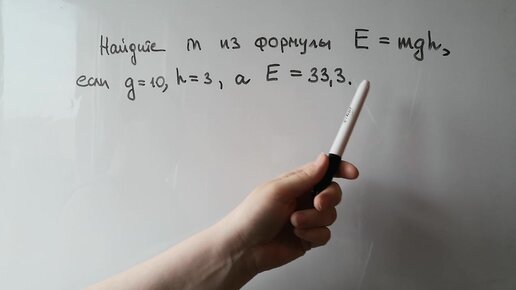 Найдите m из формулы E = mgh,
если g=10, h=3, а E = 33,3.